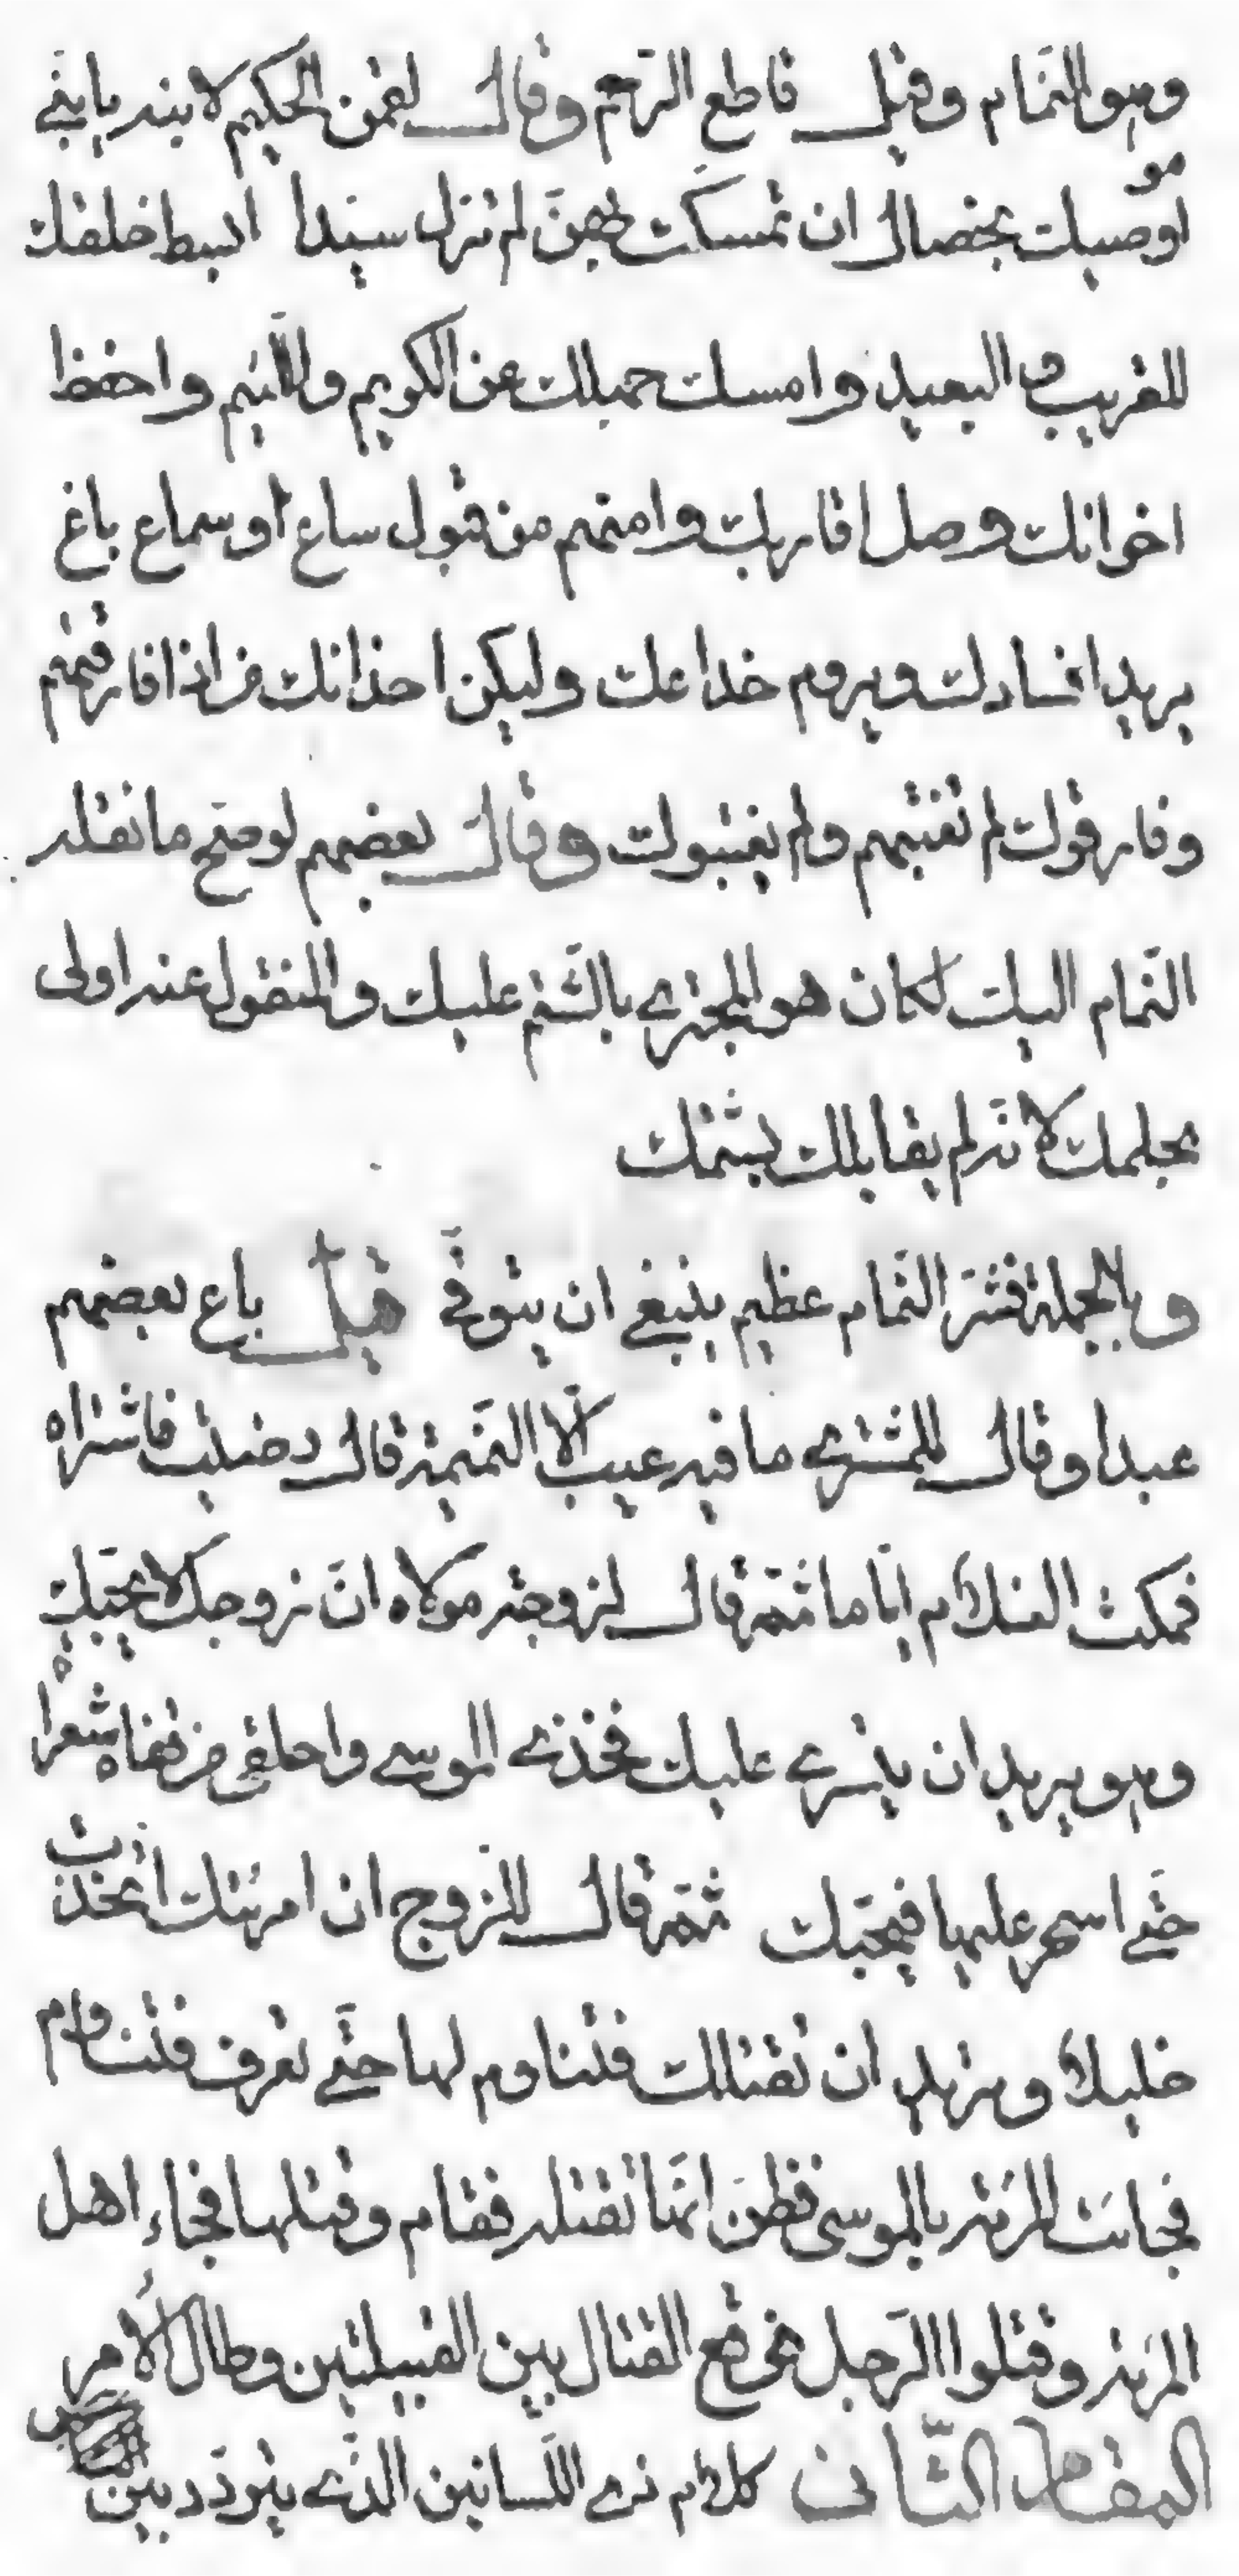 وهو النمّام وقيل قاطع الرّحم وقال لقمن الحكيم لابنه يا بنيّ
اوصيك بخصال ان تمسكّت بهنّ لم تزل سيّدا ابسط خلقك
للقريب و البعيد وامسك جهلك عن الكريم واللّئيم واحفظ
اخوانك وصل اقاربك وامنهم من قبول ساع أو سماع باغ
يريد افسادك ويروم خداعك وليكن اخدانك من اذا فارقتهم
وفارقوك لم تغتبهم ولم يغتبوك وقال بعضهم لو صحّ ما نقله
النّمام اليك لكان هو المجتري بالشّتم عليك والمنقول عنه اولى
بحلمك لانّه لم يقابلك بشتمك
وبالجملة فشرّ النّمام عظيم ينبغي ان يتوقّي قيل باع بعضهم
عبدا وقال للمشتري ما فيه عيب الّا النّميمة قال رضيت فاشتراه
فمكث الغلام ايّاما ثمّ قال لزوجة مولاه انّ زوجك لا يحبّك
وهو يريد ان يتسري عليك فخذي الموسي واحلقي من قفاه شعرا
حتّي اسحر عليها فيحبّك ثمّ قال للزّوج ان امرئتك اتّخذت
خليلا وتريد ان تقتلك فتناوم لها حتّي تعرف فتناوم
فجائت المرئة بالموسى فظنّ انّها تقتله فقام وقتلها فجاء اهل
المرئة وقتلوا الرّجل فوقع القتال بين القبيلتين وطال الأمر
المقام الثّانى كلام ذي اللّسانين الّذي يتردّد بين